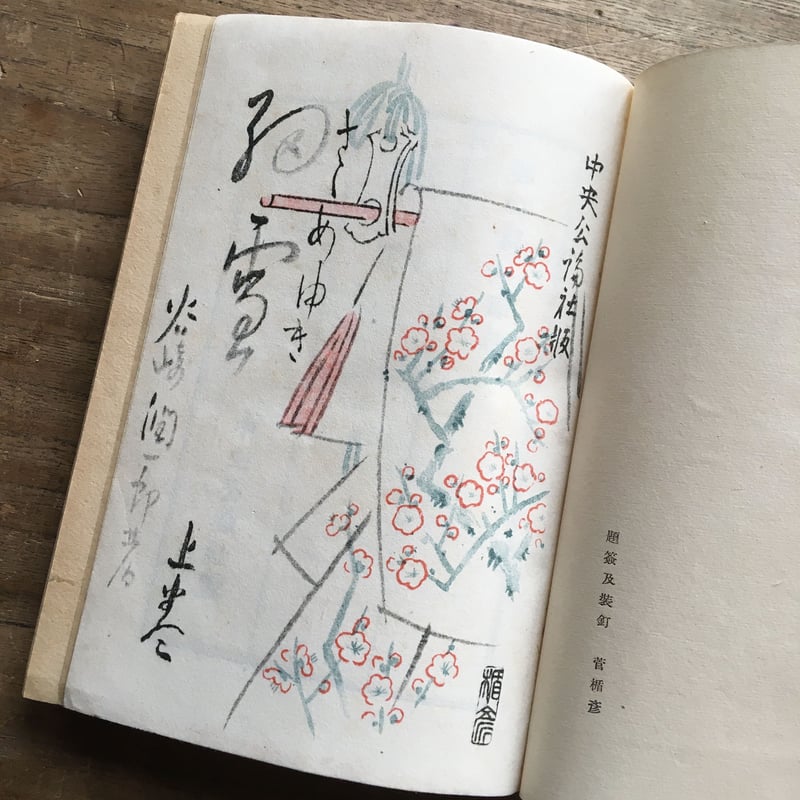 題簽及装釘　菅楯彦
中央公論社版
さゝめゆき
細雪
谷崎潤一郎著
上巻
楯彦